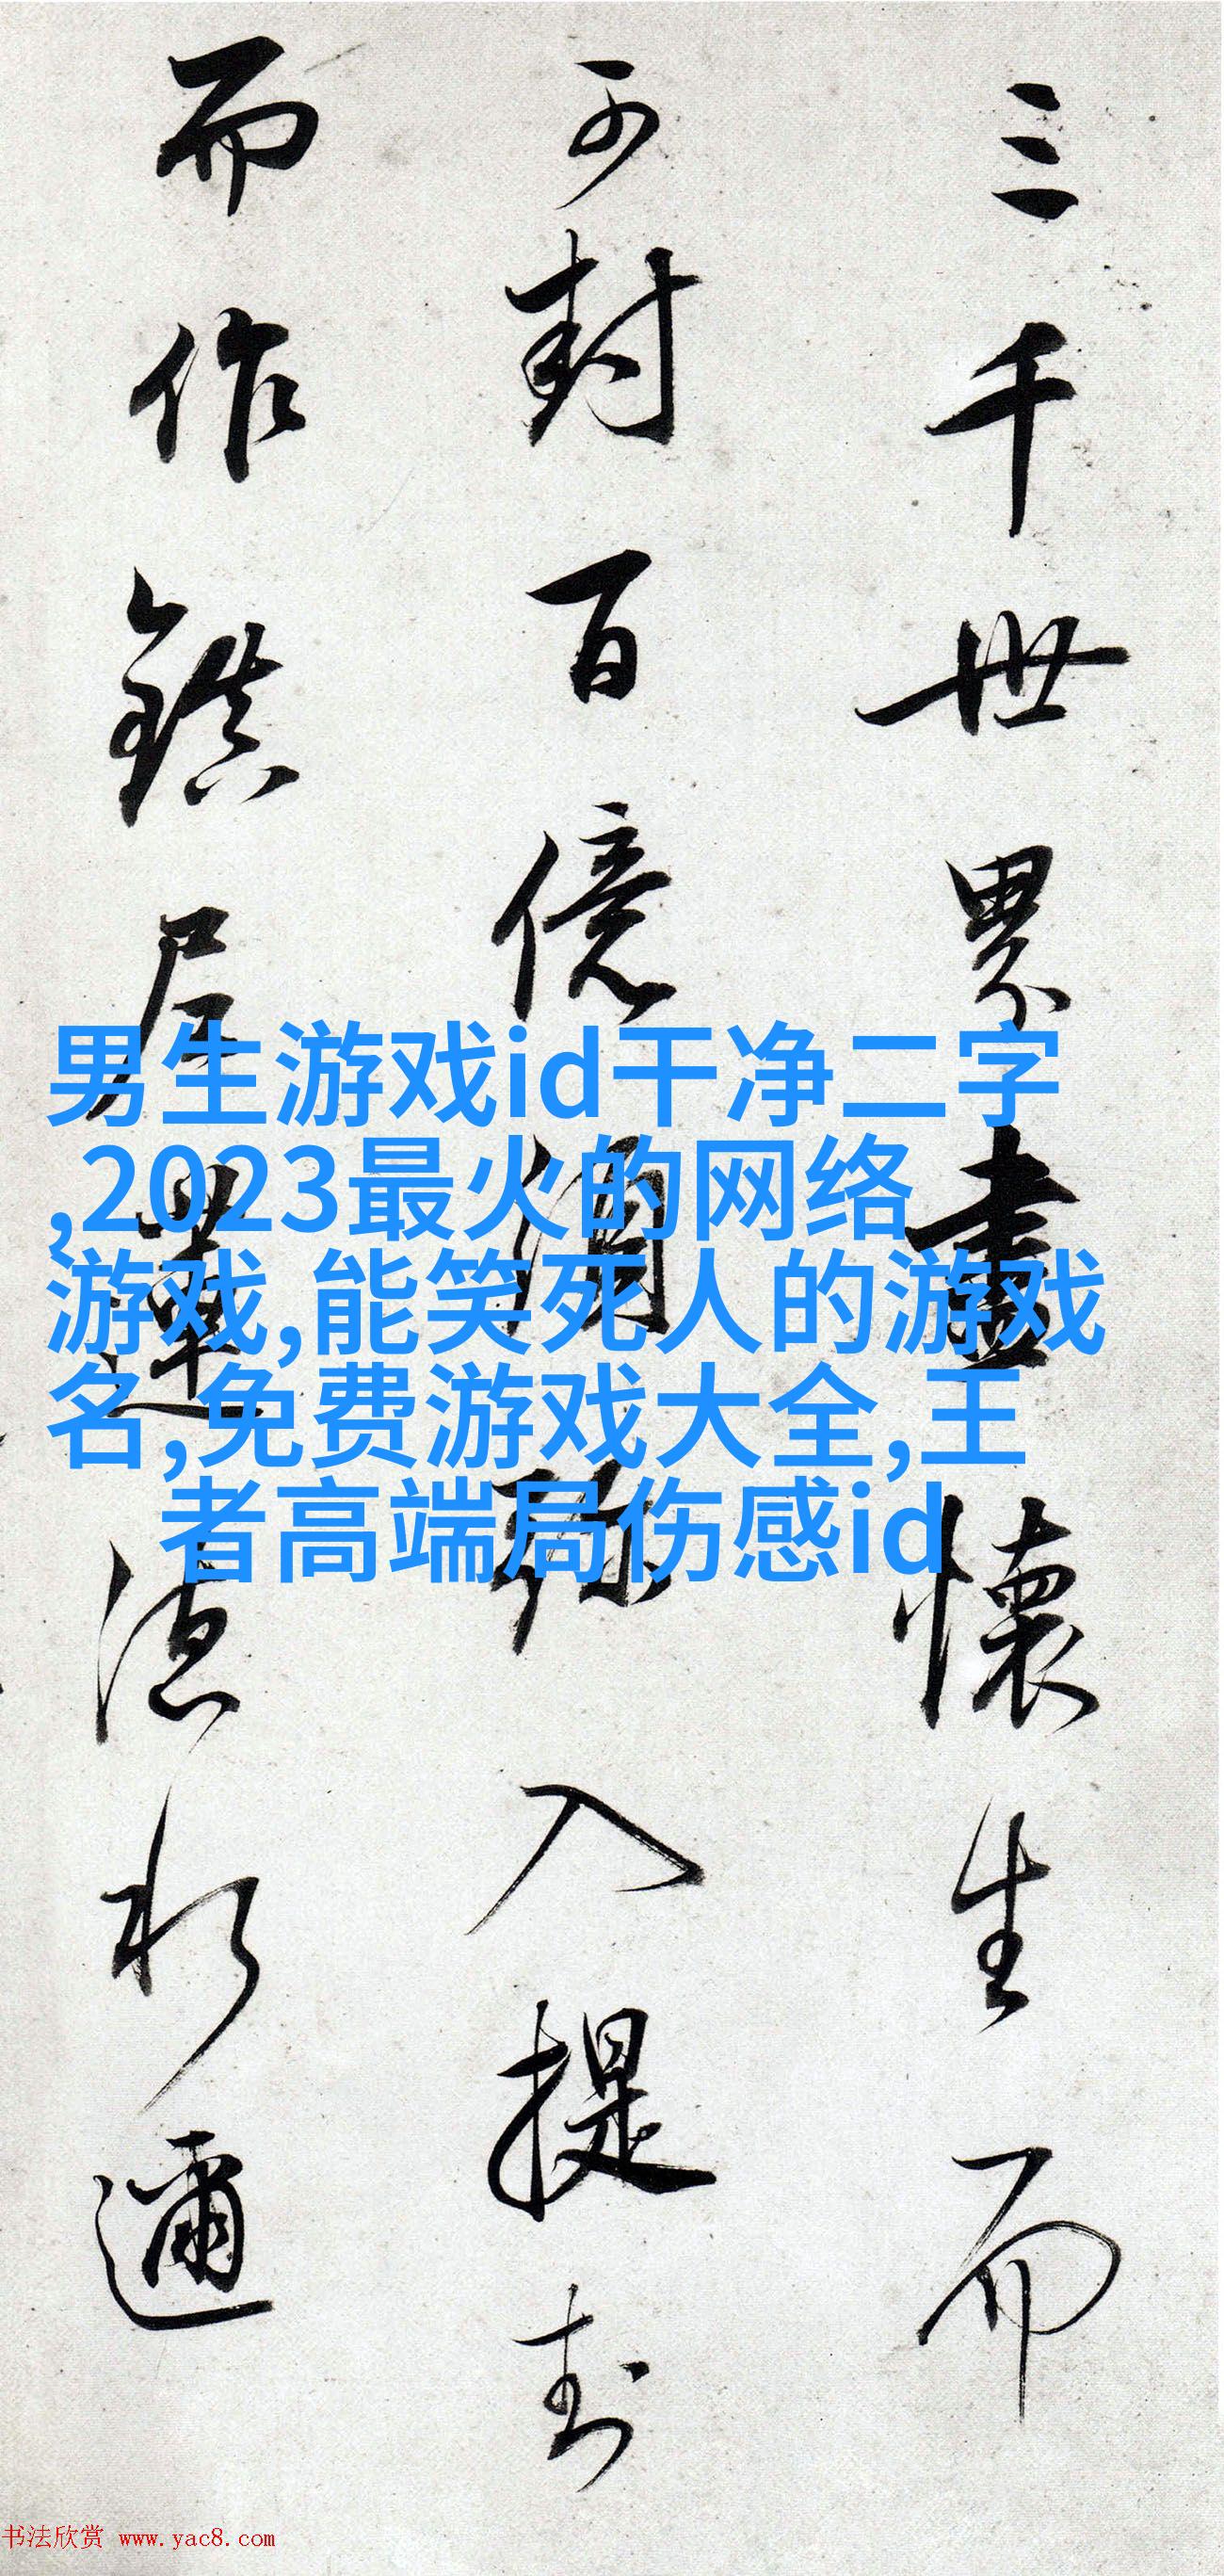 三千世界盡懷生而
可封百億須弥入提封
而作鎮尼蓮德水邇
男生游戏id干净二字
,2023最火的网络
游戏,能笑死人的游戏
名,免费游戏大全,王
者高端局伤感id
书法欣赏 www.yac8.com